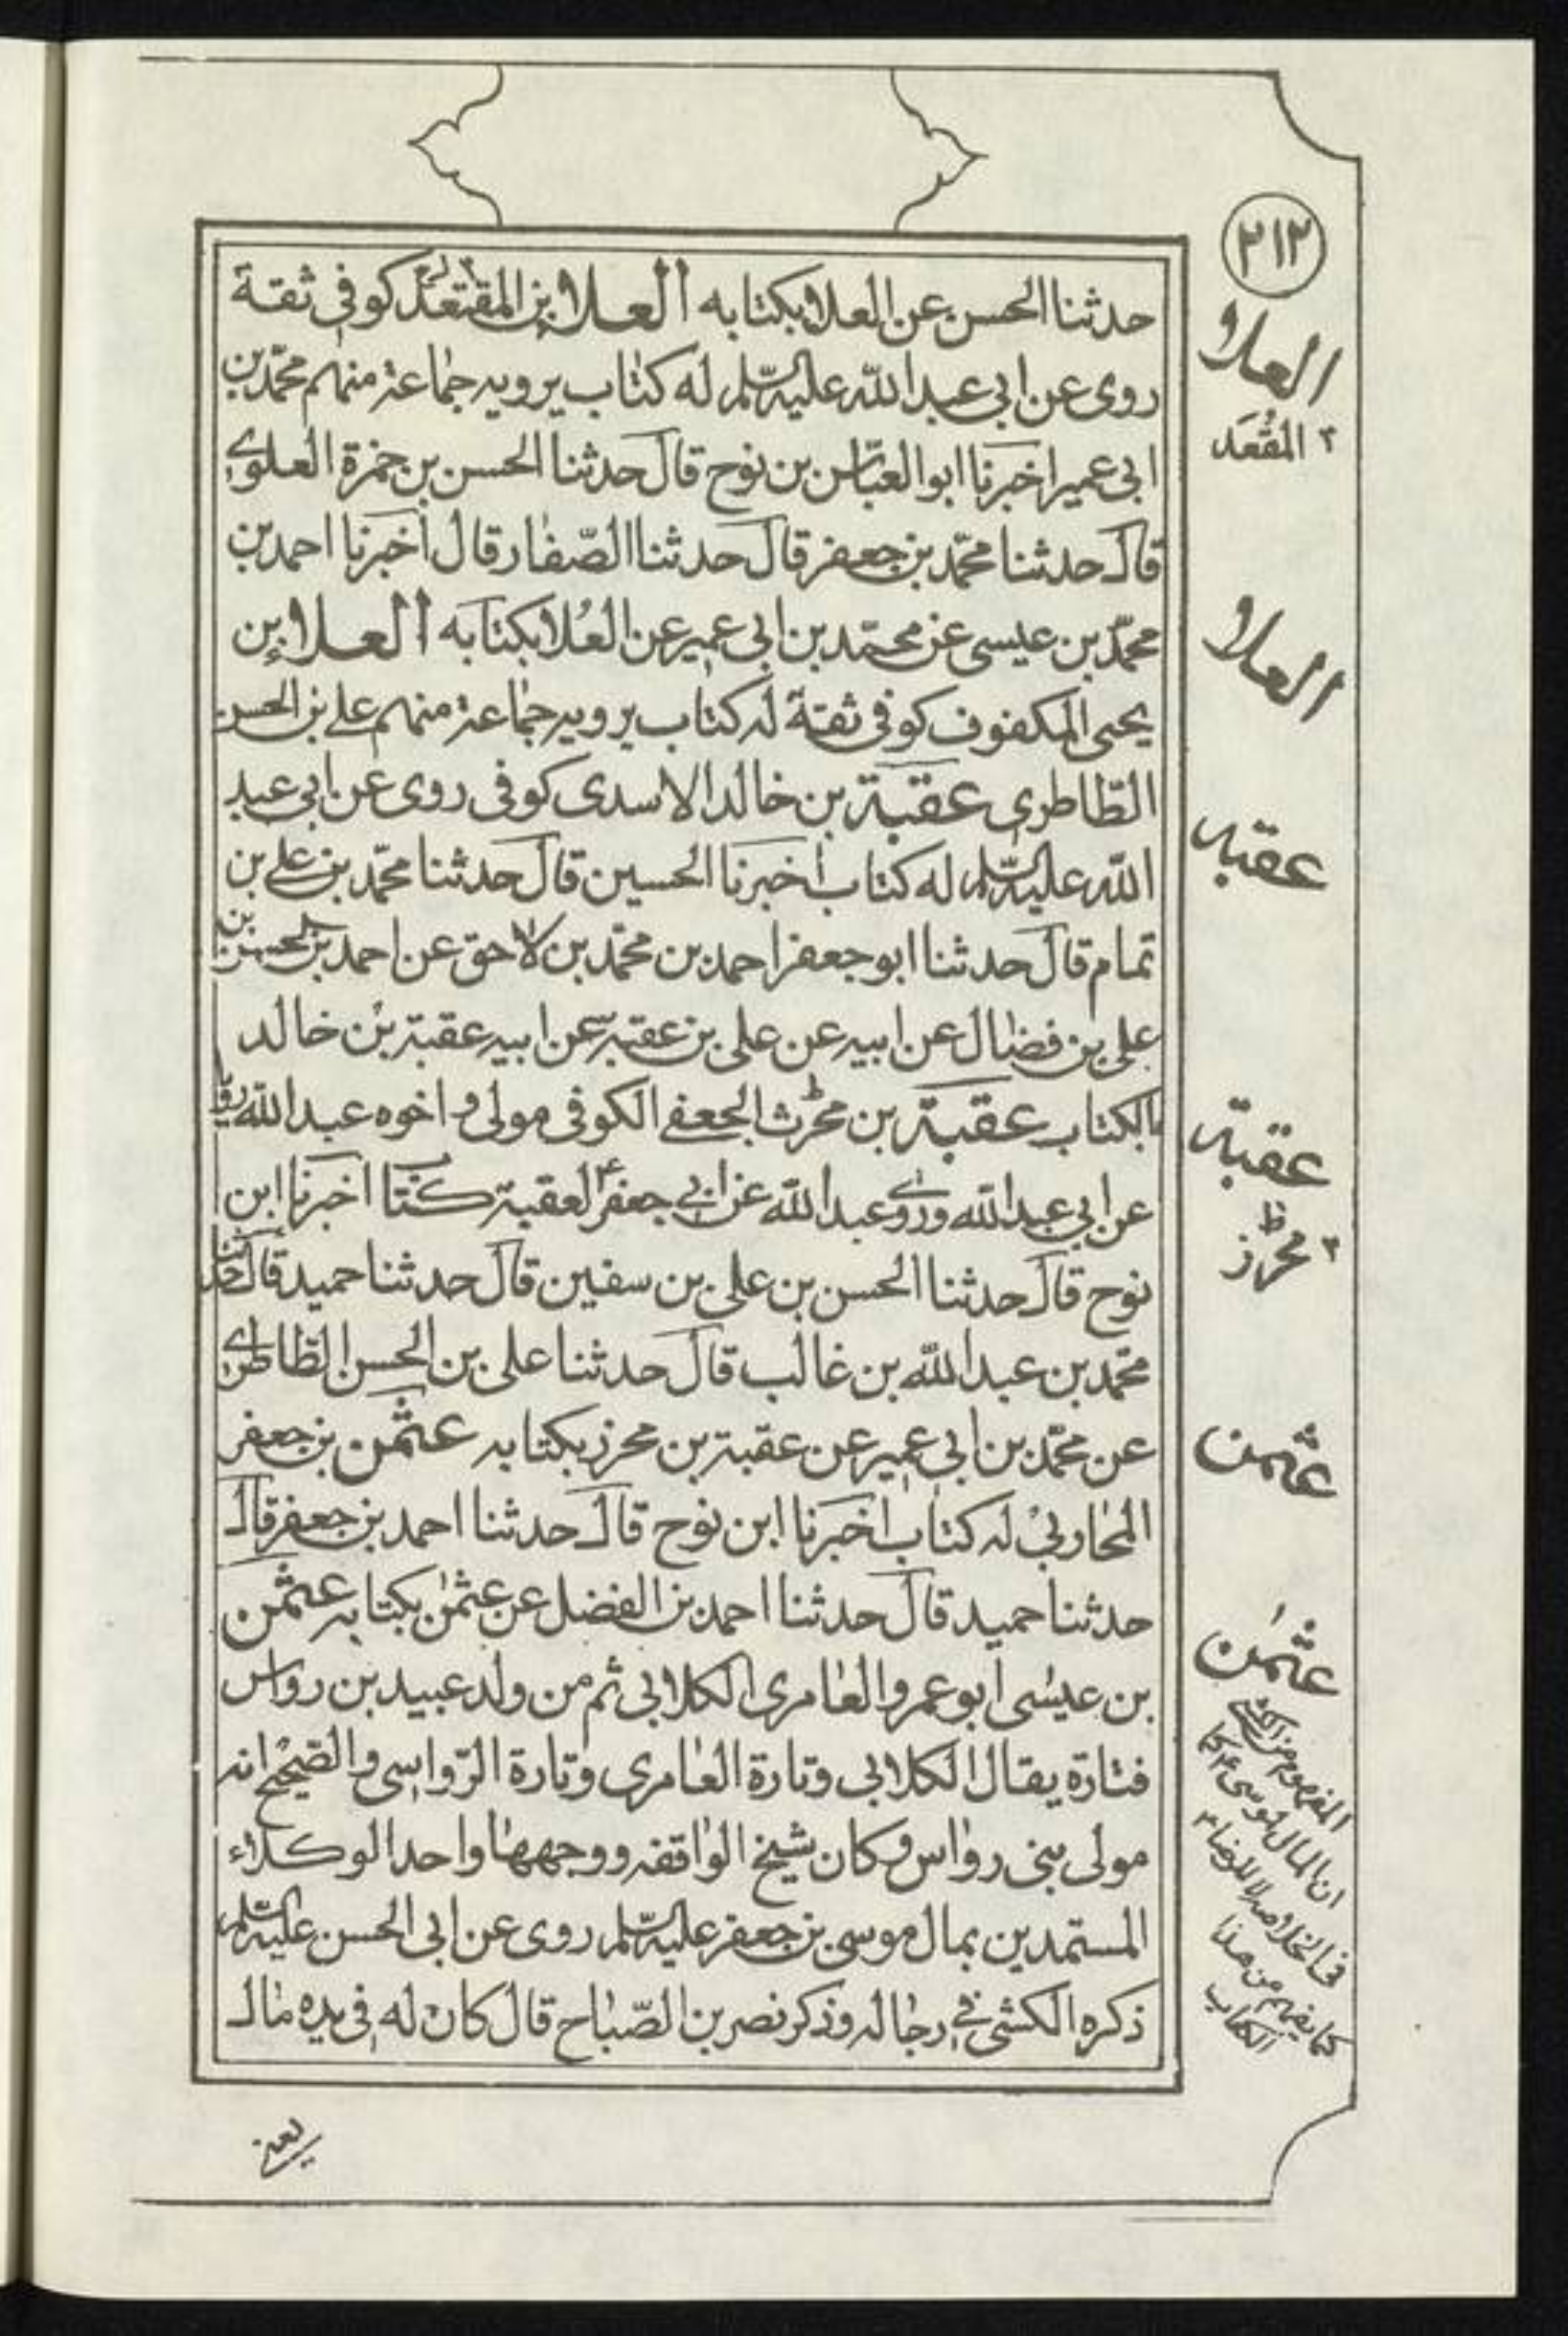 ٢١٢
حدثنا الحسن عن العلا بكتابه العلا بن المقتعد كوفى ثقة
روى عن ابى عبد الله عليه السلم له كتاب يرويه جماعة منهم محمد بن
ابى عمير اخبرنا ابو العباس بن نوح قال حدثنا الحسن بن حمزة العلوى
قال حدثنا محمد بن جعفر قال حدثنا الصفار قال اخبرنا احمد بن
محمد بن عيسى عن محمد بن ابى عمير عن العلا بكتابه العلا بن
يحيى المكفوف كوفى ثقة له كتاب يرويه جماعة منهم على بن الحسن
الطاطرى عقبة بن خالد الاسدى كوفى روى عن ابى عبد
الله عليه السلم له كتاب اخبرنا الحسين قال حدثنا محمد بن على بن
تمام قال حدثنا ابو جعفر احمد بن محمد بن لاحق عن احمد بن الحسن بن
على بن فضال عن ابيه عن على بن عقبة عن ابيه عقبة بن خالد
بالكتاب عقبة بن محرث الجعفى الكوفى مولى و اخوه عبد الله رويا
عن ابى عبد الله وروى عبد الله عن ابى جعفر ع لعقبة كتاب اخبرنا ابن
نوح قال حدثنا الحسن بن على بن سفين قال حدثنا حميد قال حدثنا
محمد بن عبد الله بن غالب قال حدثنا على بن الحسن الطاطرى
عن محمد بن ابى عمير عن عقبة بن محرز بكتابه عثمن بن جعفر
المحاربى له كتاب اخبرنا ابن نوح قال حدثنا احمد بن جعفر قال
حدثنا حميد قال حدثنا احمد بن الفضل عن عثمن بكتابه عثمن
بن عيسى ابو عمرو العامرى الكلابى ثم من ولد عبيد بن رواس
فتارة يقال الكلابى وتارة العامرى وتارة الرواسى والصحيح انه
مولى بنى رواس وكان شيخ الواقفه ووجهها واحد الوكلاء
المستمدين بمال موسى بن جعفر عليه السلم روى عن ابى الحسن عليه السلم
ذكره الكشى فى رجاله وذكر نصر بن الصباح قال كان له فى يده مال
العلا
٢ المقعد
العلا
عقبه
عقبة
٢ محرز ظ
عثمن
عثمن
المفهوم من الكشى
ان المال لموسى ع كما
فى الخلاصه لا للرضا ع
كما يفهم من هذا
الكتاب
يعنى